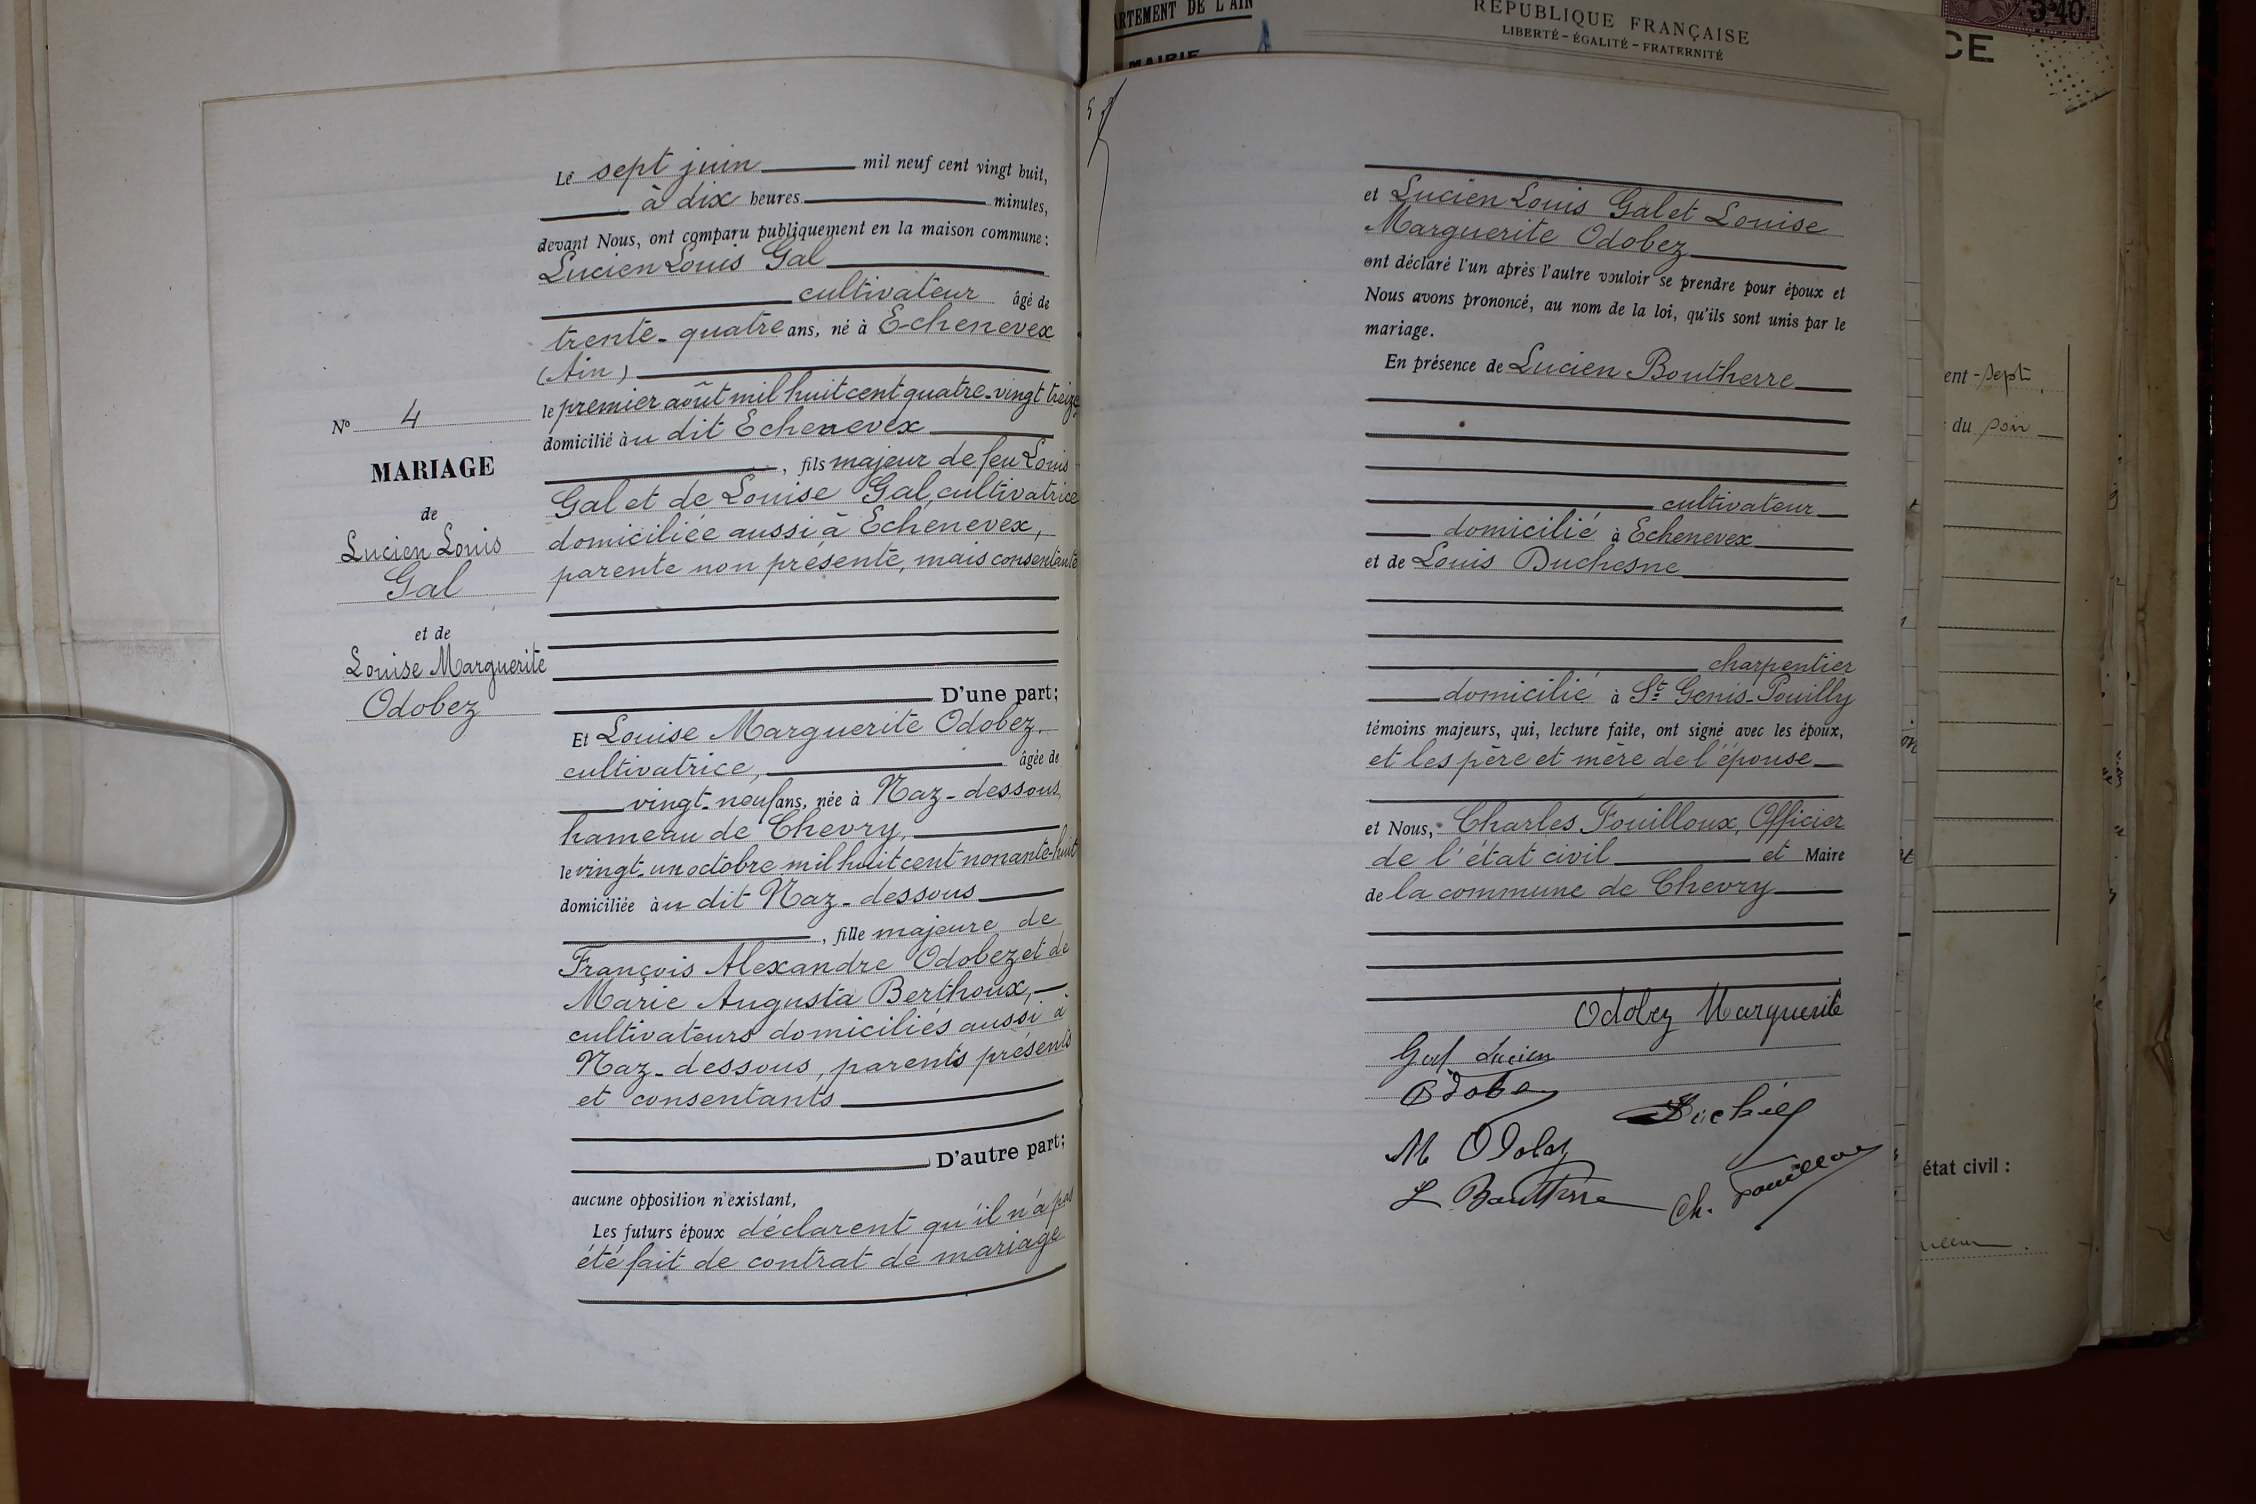 ARTEMENT DE L'AIN
MAIRIE
RÉPUBLIQUE FRANÇAISE
LIBERTÉ - ÉGALITÉ - FRATERNITÉ
5.40
CE
N° 4
MARIAGE
de
Lucien Louis
Gal
et de
Louise Marguerite
Odobez
Le sept juin mil neuf cent vingt huit,
à dix heures minutes,
devant Nous, ont comparu publiquement en la maison commune :
Lucien Louis Gal
cultivateur âgé de
trente-quatre ans, né à Echenevex
(Ain)
le premier août mil huit cent quatre-vingt treize
domicilié à u dit Echenevex
, fils majeur de feu Louis
Gal et de Louise Gal, cultivatrice
domiciliée aussi à Echenevex,
parente non présente, mais consentante
D'une part ;
Et Louise Marguerite Odobez,
cultivatrice, âgée de
vingt-neuf ans, née à Naz-dessous
hameau de Chevry,
le vingt-un octobre mil huit cent nonante-huit
domiciliée à u dit Naz-dessous
, fille majeure de
François Alexandre Odobez et de
Marie Augusta Berthoux,
cultivateurs domiciliés aussi à
Naz-dessous, parents présents
et consentants
D'autre part ;
aucune opposition n'existant,
Les futurs époux déclarent qu'il n'a pas
été fait de contrat de mariage
et Lucien Louis Gal et Louise
Marguerite Odobez
ont déclaré l'un après l'autre vouloir se prendre pour époux et
Nous avons prononcé, au nom de la loi, qu'ils sont unis par le
mariage.
En présence de Lucien Boutherre
cultivateur
domicilié à Echenevex
et de Louis Duchesne
charpentier
domicilié à St Genis-Pouilly
témoins majeurs, qui, lecture faite, ont signé avec les époux,
et les père et mère de l'épouse
et Nous, Charles Fouilloux, Officier
de l'état civil et Maire
de la commune de Chevry
Odobez Marguerite
Gal Lucien
Odobez
M Odobez
L Boutherre
Ch. Fouilloux
ent-sept
du soir
état civil :